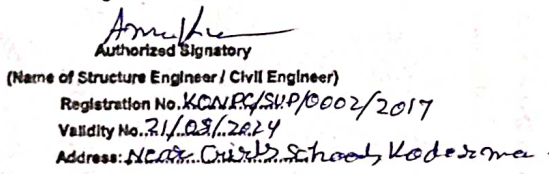 Authorized Signatory
(Name of Structure Engineer / Civil Engineer)
Registration No. KONPC/SUP/0002/2017
Validity No. 21/08/2024
Address: Near Girls School, Koderma